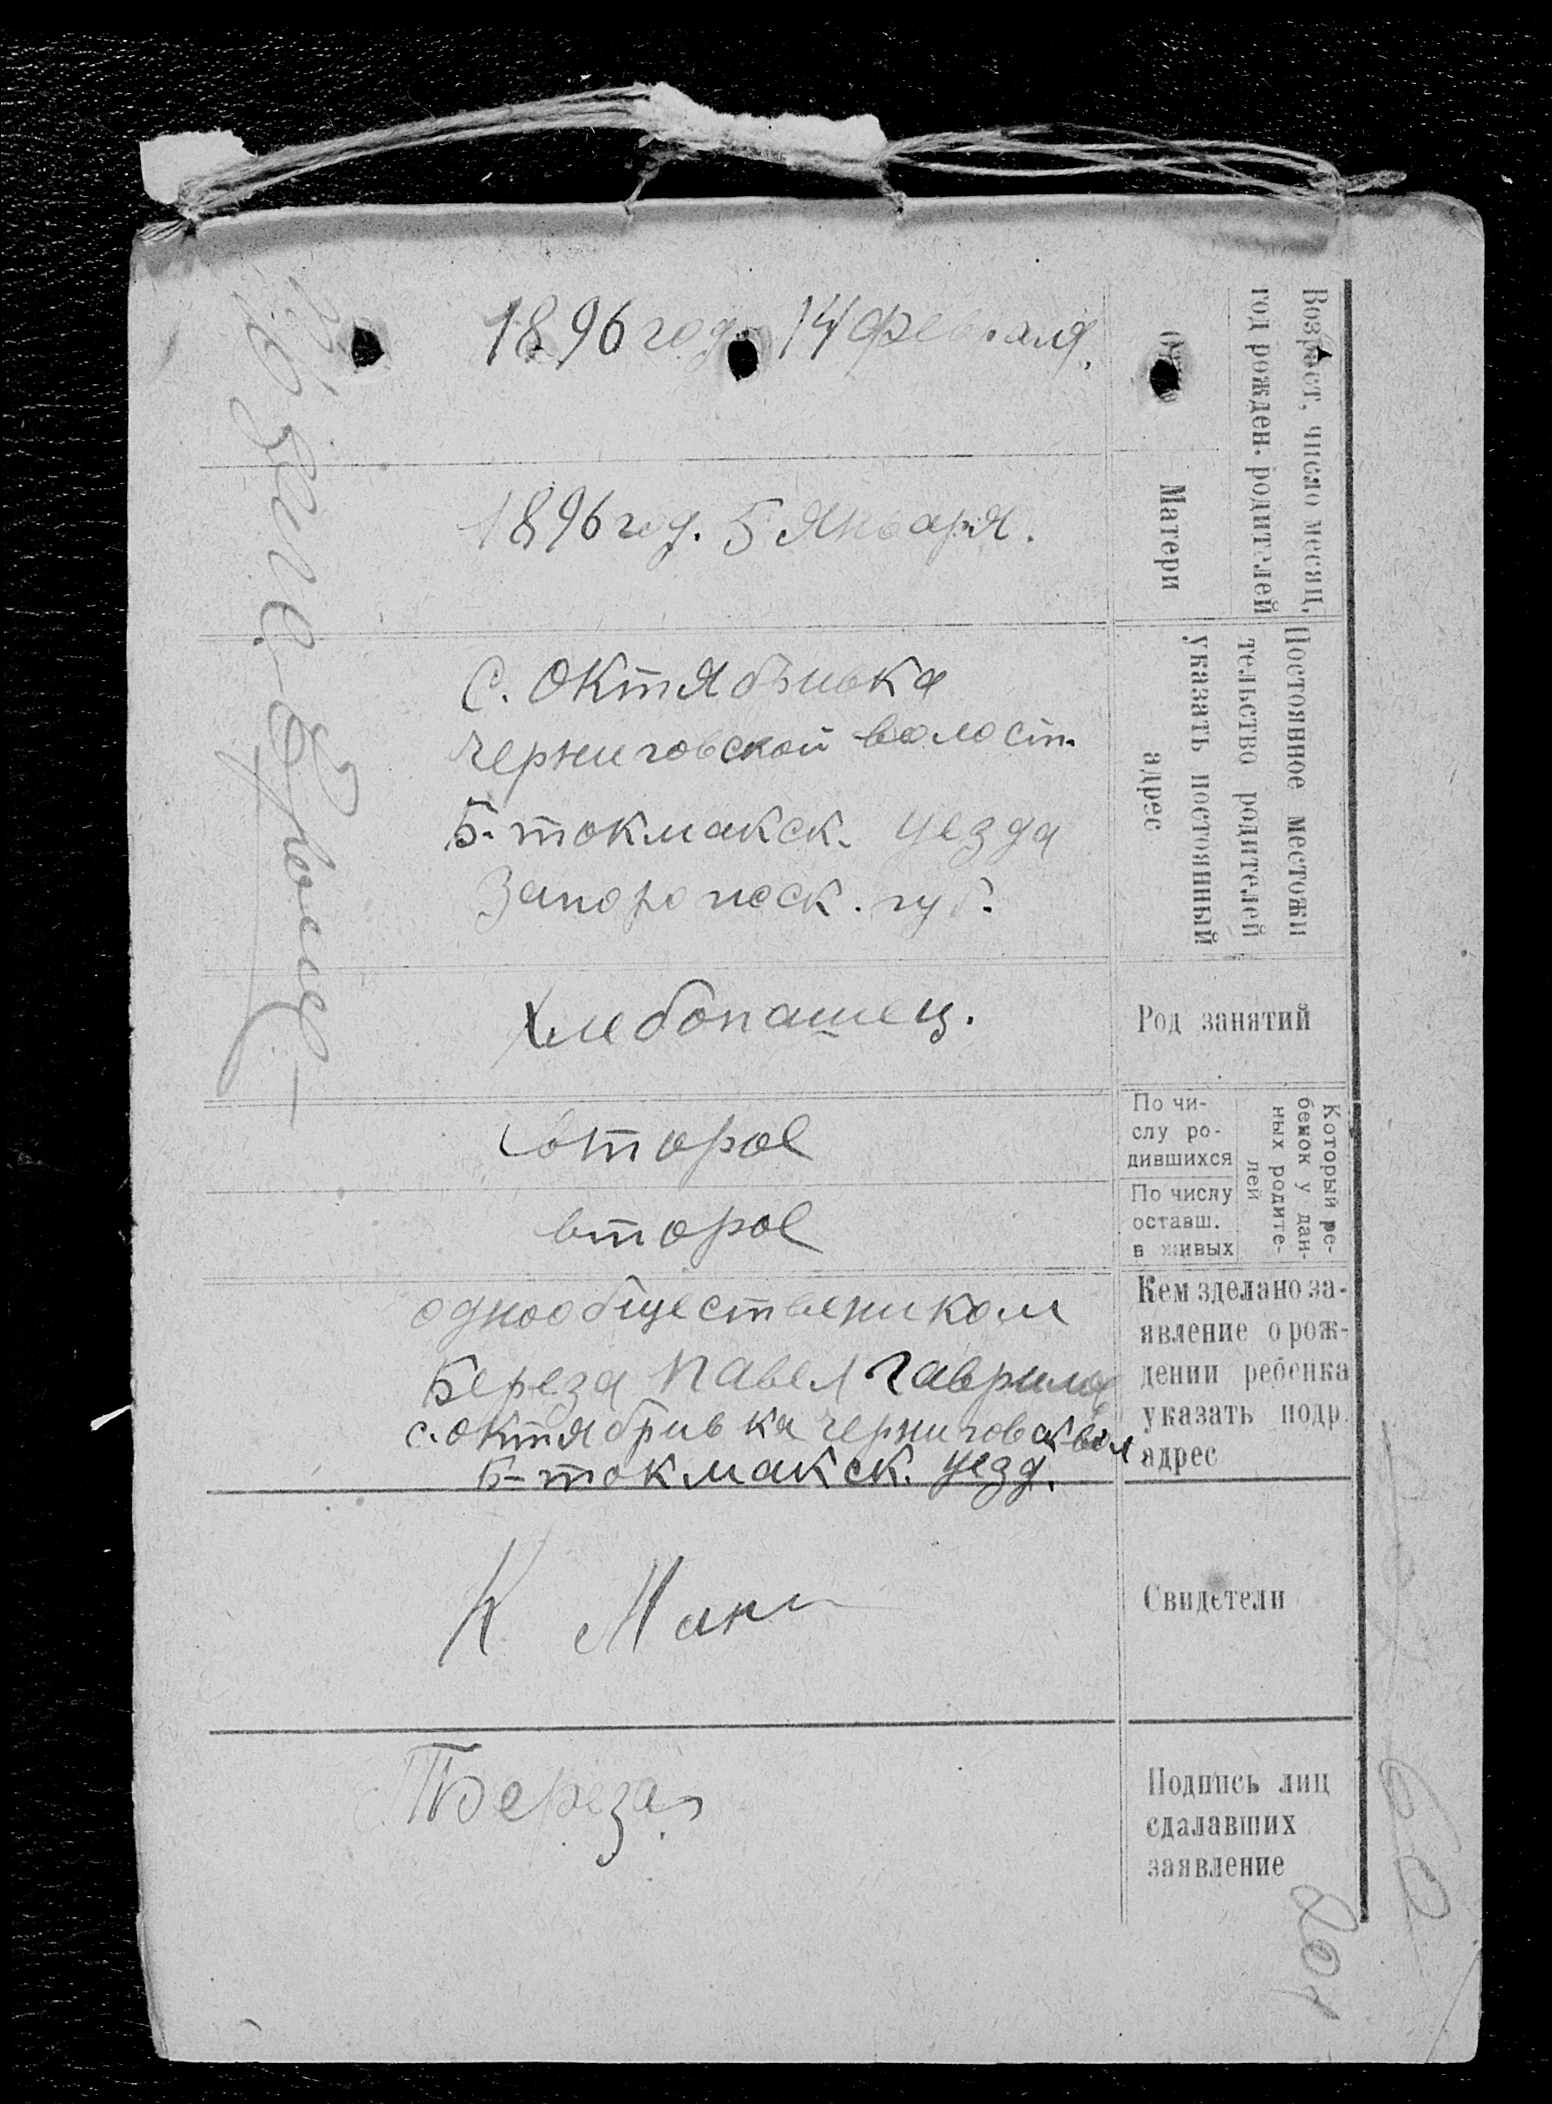 Возраст, число месяц,
год рожден. родителей
1896 год. 14 февраля.
Матери
1896 год. 5 января.
Постоянное местожи
тельство родителей
указать постоянный
адрес
с. Октябривка
Черниговской волост.
Б-токмакск. уезда
Запорожск. губ.
Род занятий
Хлебопашец.
Который ре-
бенок у дан-
ных родите-
лей
По чи-
слу ро-
дившихся
второе
По числу
оставш.
в живых
второе
Кем зделано за-
явление о рож-
дении ребенка
указать подр.
адрес
однообщественником
Береза Павел Гаврилов
с. Октябривка Черниговск вол
Б-токмакск. уезд.
Свидетели
К
Подпись лиц
сдалавших
заявление
Береза
62
201